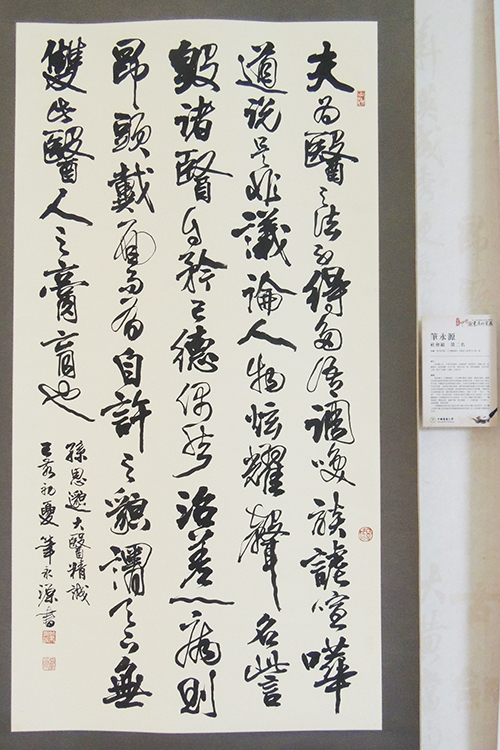 夫為醫之法不得多語調咲談謔喧嘩
道說是非議論人物炫耀聲名訾
毀諸醫自矜己德偶然治差一病則
昂頭戴面而有自許之貌謂天下無
雙此醫人之膏肓也
孫思邈大醫精誠
初夏筆永源書
筆永源
社會組 第二名